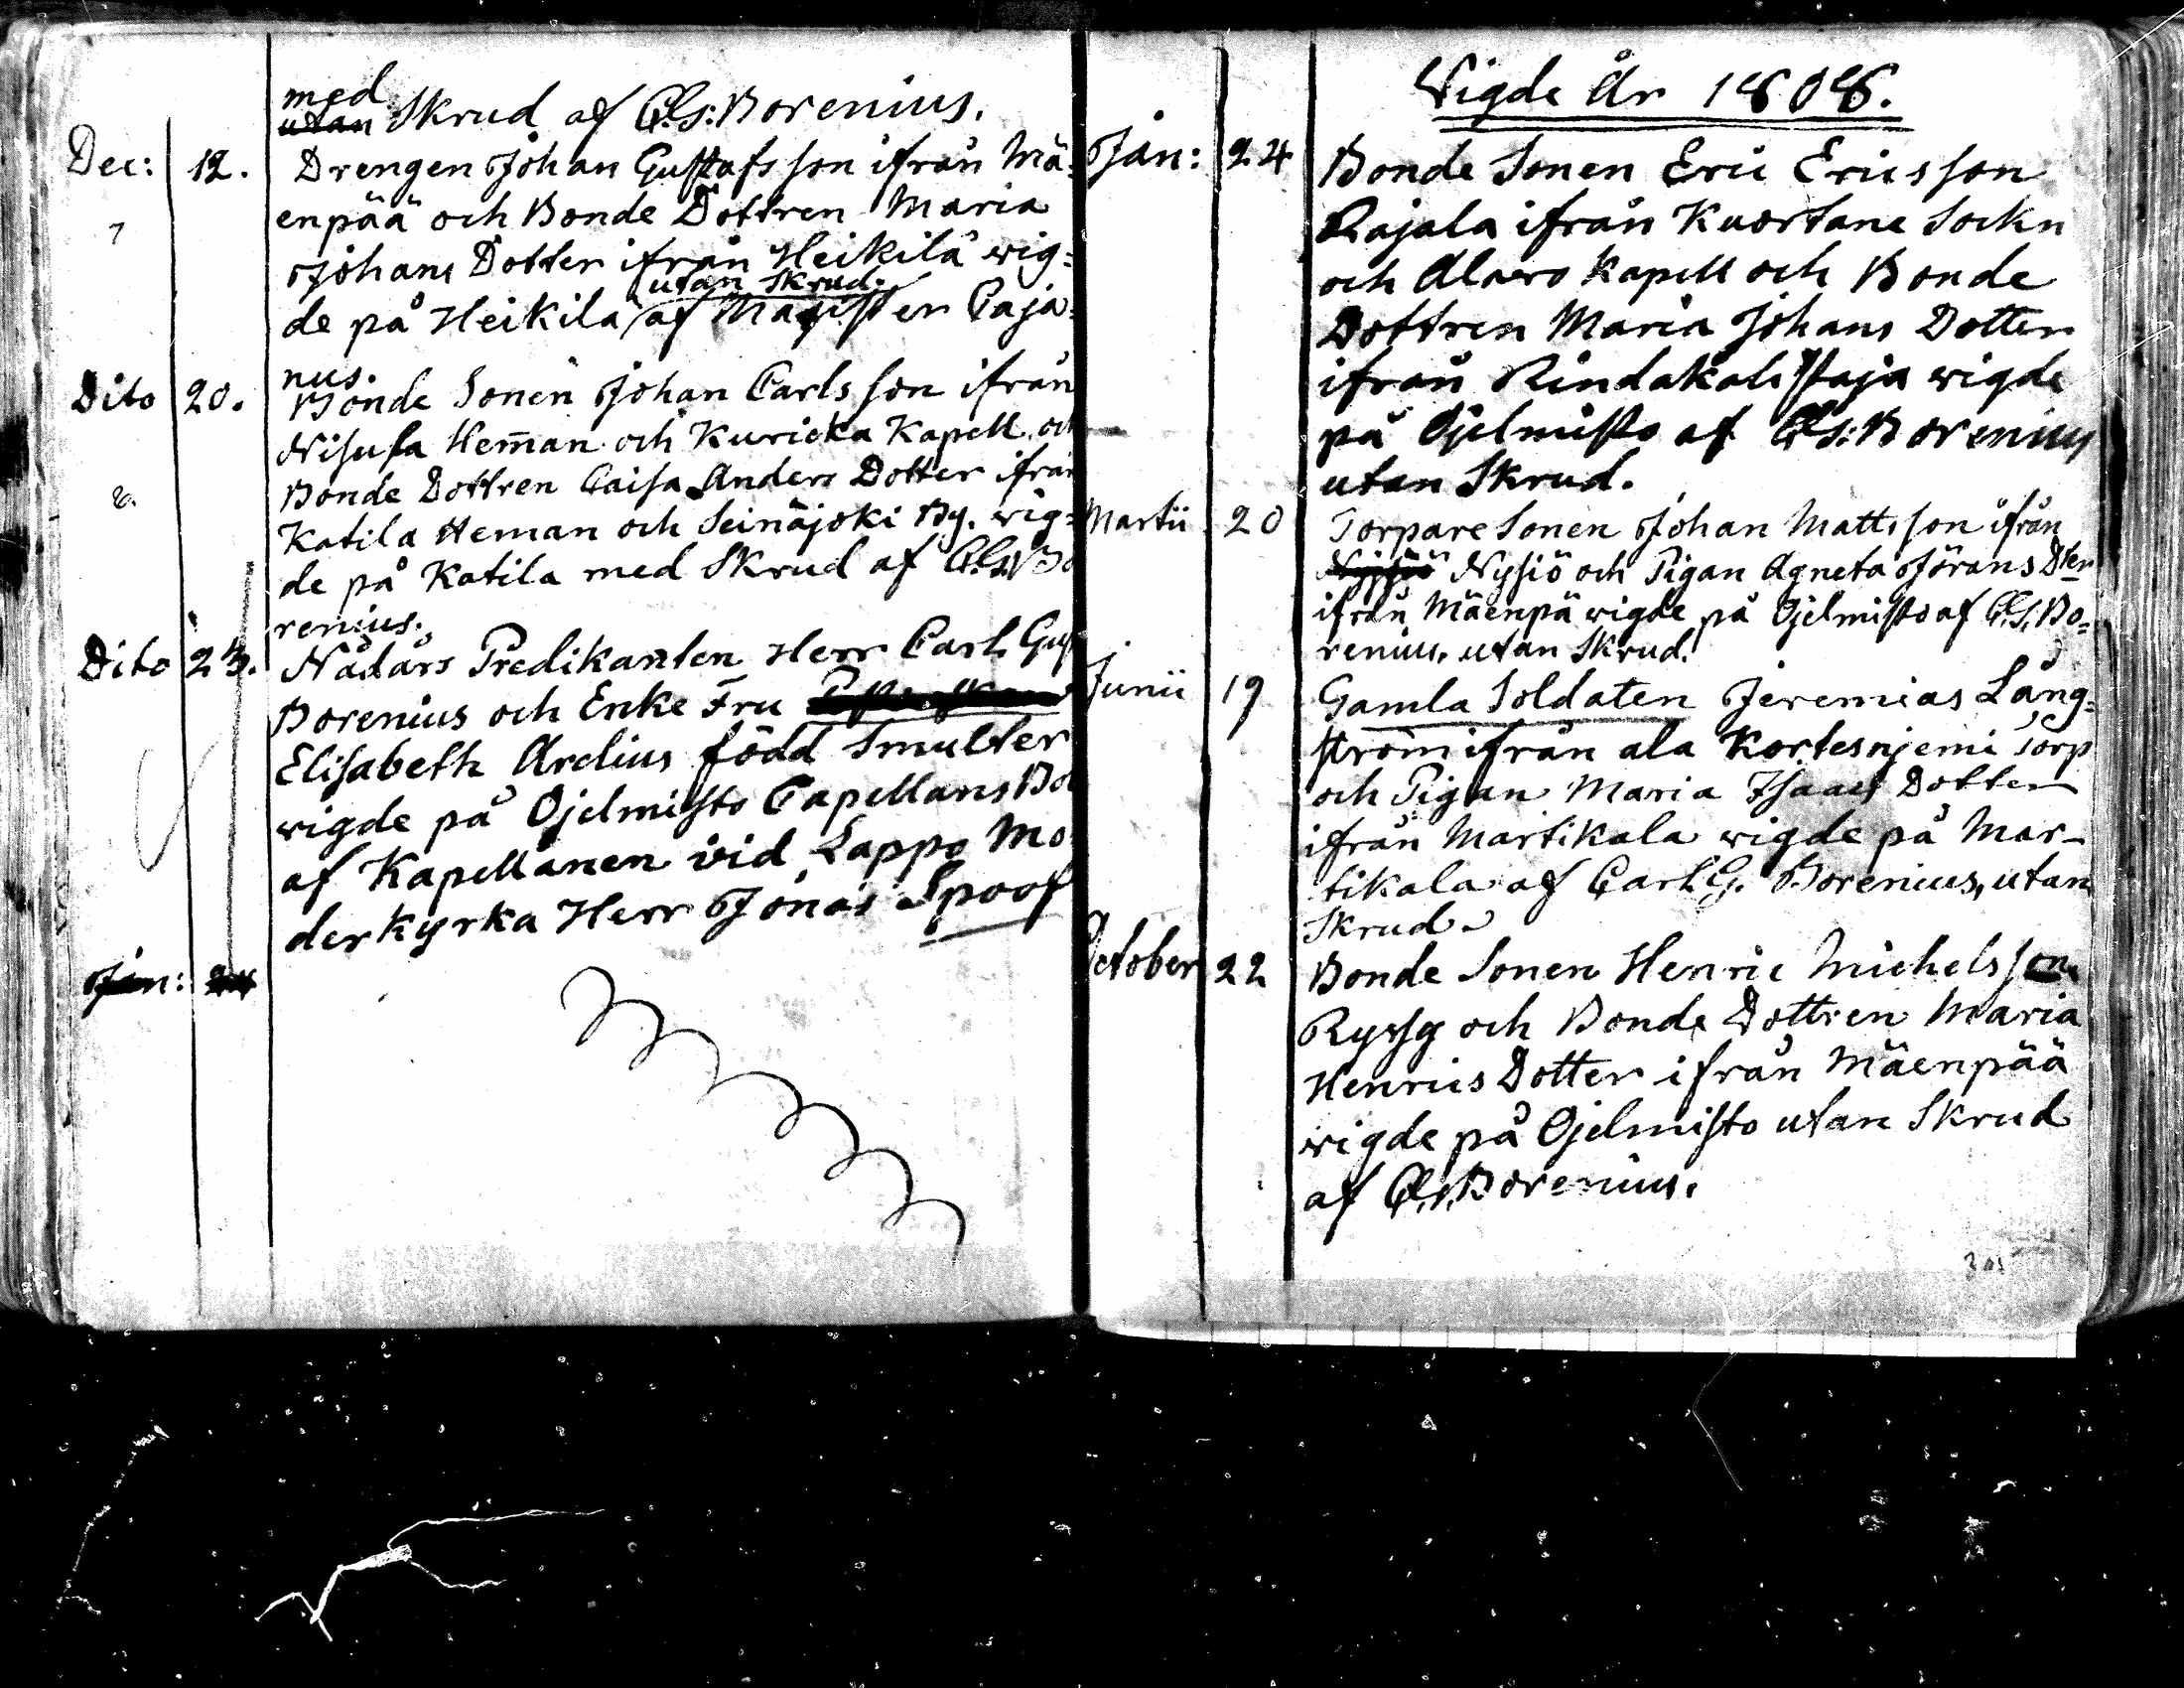 med
utan Skrud af C.G: Borenius.
Dec: 12. Drengen Johan Gustafsson ifrån Mä=
7 enpää och Bonde Dottren Maria
Johans Dotter ifrån Heikilä wig=
utan Skrud.
de på Heikilä af Magister Caja=
nus.
Dito 20. Bonde Sonen Johan Carlsson ifrån
Nisula Heman och Kuricka Kapell och
8. Bonde Dottren Caisa Anders Dotter ifrån
Katila Heman och Seinäjoki By. wig=
de på Katila med Skrud af C.G. Bo
renius.
Dito Nådårs Predikanten Herr Carl Gust
Borenius och Enke Fru
Elisabeth Arelius född Smulter
wigde på Ojelmisto Capellans Bo
af Kapellanen vid Lappo Mo
der Kyrka Herr Jonas Spoof
Jan: 24
Wigde År 1808.
Jan: 24 Bonde Sonen Eric Ericsson
Rajala ifrån Kuortane Sockn
och Alavo Kapell och Bonde
Dottren Maria Johans Dotter
ifrån Rindakalistaja wigde
på Ojelmisto af C.G: Borenius
utan Skrud.
Martii 20 Torpare Sonen Johan Mattsson ifrån
Nysiö och Pigan Agneta Jörans Dter
ifrån Mäenpä wigde på Ojelmisto af C.G. Bo=
renius. utan Skrud.
Junii 19 Gamla Soldaten Jeremias Lång=
ström ifrån ala Kortesnjemi Torp
och Pigan Maria Isaacs Dotter
ifrån Martikala wigde på Mar-
tikala af Carl G. Borenius, utan
Skrud.
October 22 Bonde Sonen Henric Michelsson
Ryssy och Bonde Dottren Maria
Henrics Dotter ifrån Mäenpää
wigde på Ojelmisto utan Skrud
af C.G. Borenius.
305